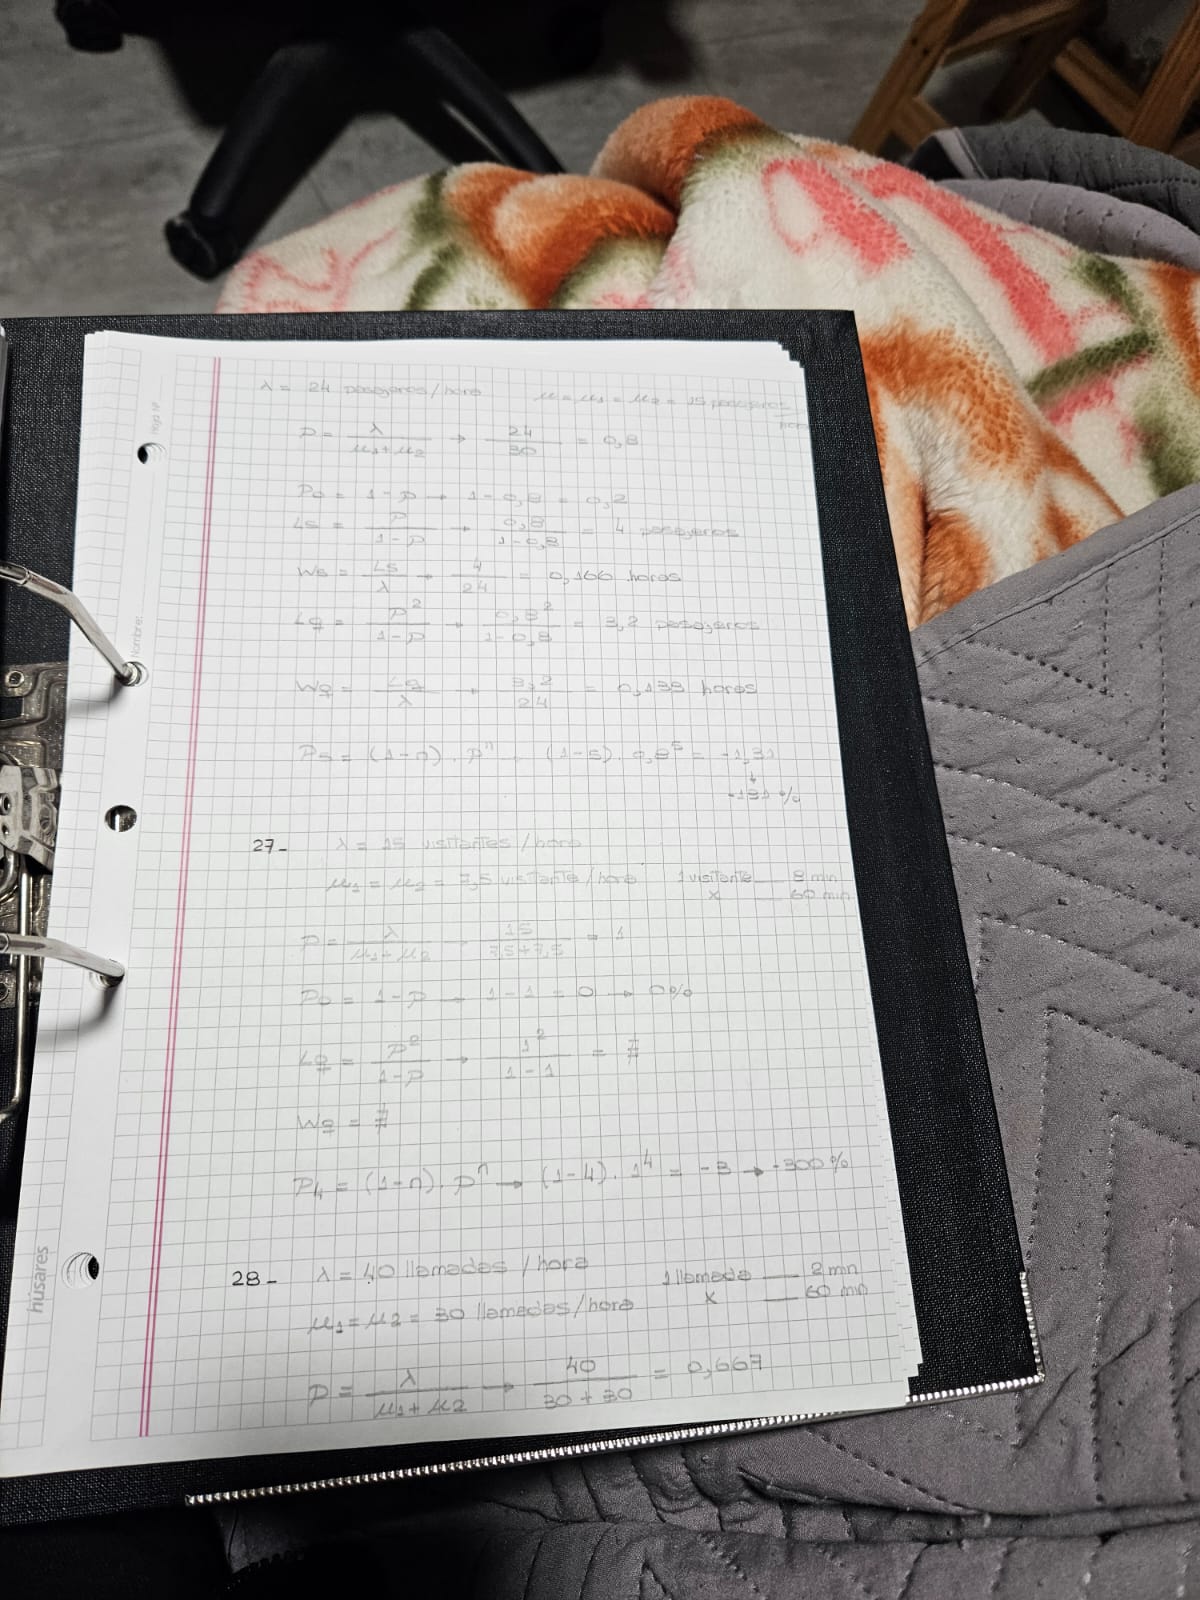 Hoja Nº
Nombre:
λ = 24 pasajeros/hora μ = μ1 = μ2 = 15 pasajeros
hora
P = λ / μ1+μ2 → 24 / 30 = 0,8
P0 = 1-P → 1-0,8 = 0,2
Ls = P / 1-P → 0,8 / 1-0,8 = 4 pasajeros
Ws = Ls / λ → 4 / 24 = 0,166 horas
Lq = P² / 1-P → 0,8² / 1-0,8 = 3,2 pasajeros
Wq = Lq / λ → 3,2 / 24 = 0,133 horas
P5 = (1-n). Pⁿ (1-5). 0,8⁵ = -1,31
↓
-131 %
27- λ = 15 visitantes /hora
μ1 = μ2 = 7,5 visitante/hora 1 visitante — 8 min
x — 60 min
P = λ / μ1+μ2 → 15 / 7,5+7,5 = 1
P0 = 1-P → 1-1 = 0 → 0%
Lq = P² / 1-P → 1² / 1-1 = ∄
Wq = ∄
P4 = (1-n). Pⁿ → (1-4). 1⁴ = -3 → -300 %
28- λ = 40 llamadas /hora 1 llamada — 2 min
μ1 = μ2 = 30 llamadas/hora x — 60 min
P = λ / μ1+μ2 → 40 / 30+30 = 0,667
húsares